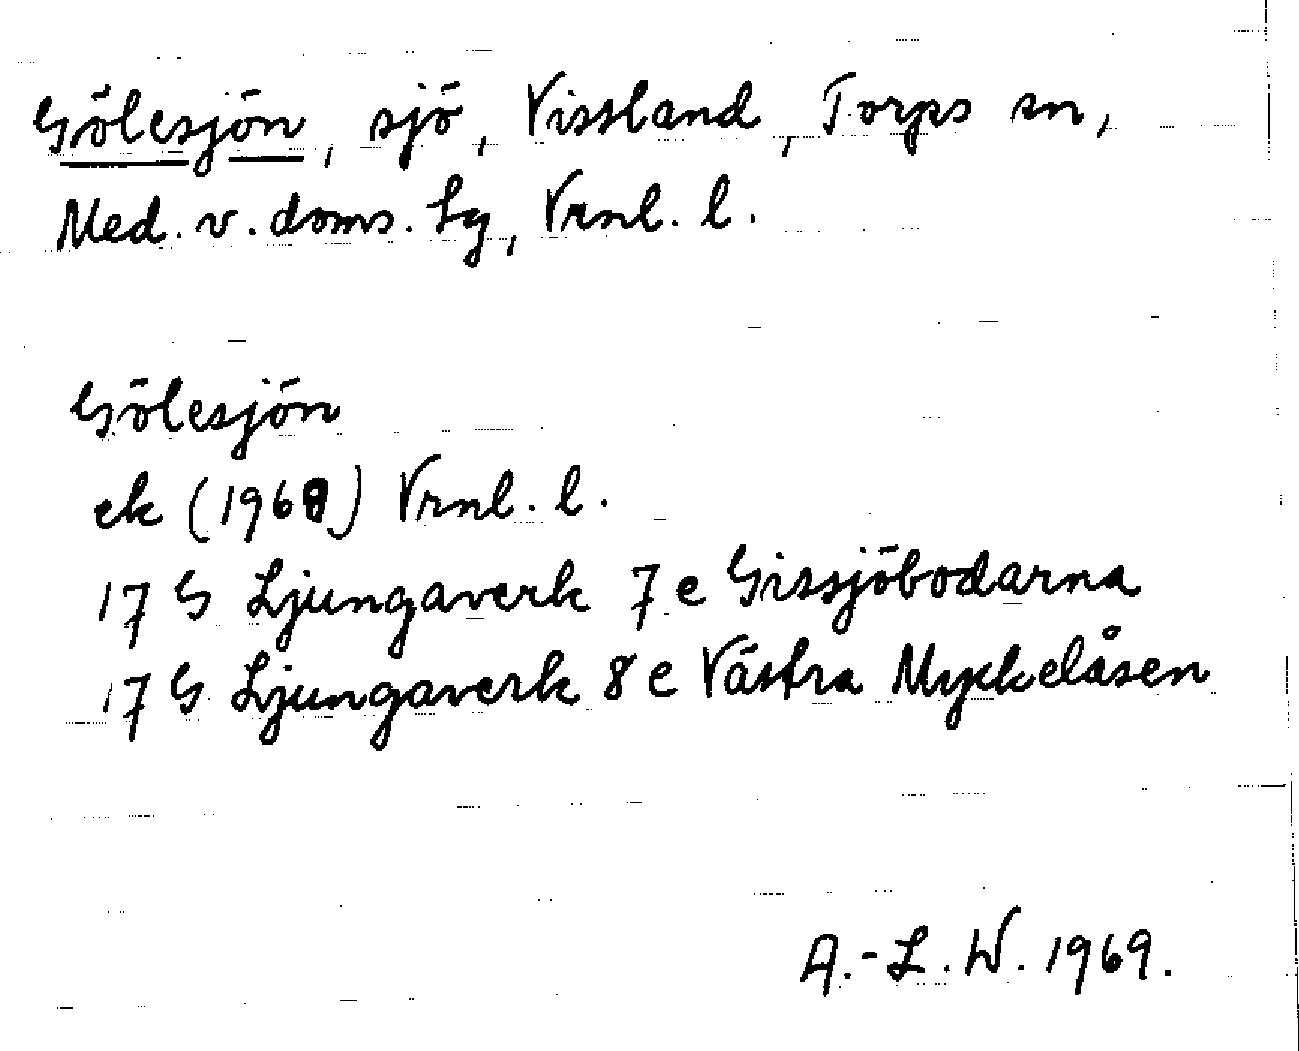 Gölesjön, sjö, Vissland, Torps sn,
Med. v. doms. Lg, Vrnl. l.
Gölesjön
ek (1968) Vrnl. l.
17 G Ljungaverk 7 e Gissjöbodarna
17 G Ljungaverk 8 e Västra Myckelåsen
A.-L. W. 1969.